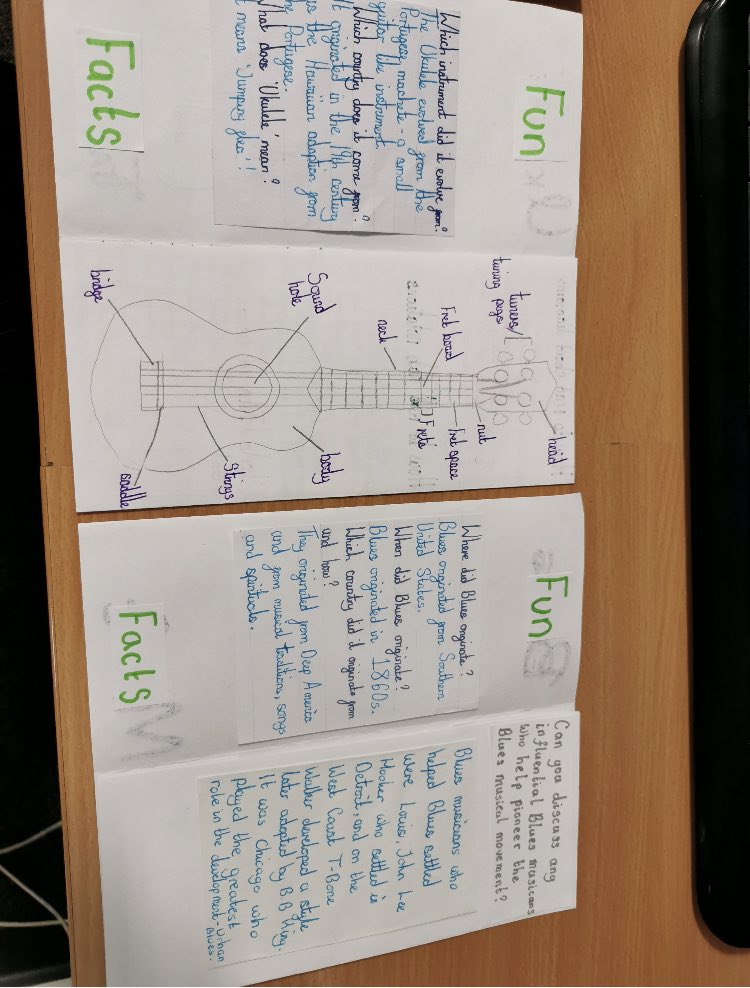 Fun
Which instrument did it evolve from?
The Ukulele evolved from the
Portugese machete - a small
guitar like instrument.
Which country does it come from?
It originated in the 19th century
is the Hawaiian adaption from
the Portugese.
What does 'Ukulele' mean?
It means 'Jumping flea'!
Facts
head
tuners/
tuning pegs
nut
Fret space
Fret board
Frets
neck
Sound
hole
body
strings
bridge
saddle
Fun
Where did Blues originate?
Blues originated from Southern
United States.
When did Blues originate?
Blues originated in 1860s.
Which country did it originate from
and how?
They originated from Deep America
and from musical traditions, songs
and spirituals.
Facts
Can you discuss any
influential Blues musicans
who help pioneer the
Blues musical movement?
Blues musicians who
helped Blues settled
were Louis, John Lee
Hooker who settled is
Detroit, and on the
West Coast T-Bone
Walker developed a style
later adopted by B.B King.
It was Chicago who
played the greatest
role in the development-urban
Blues.